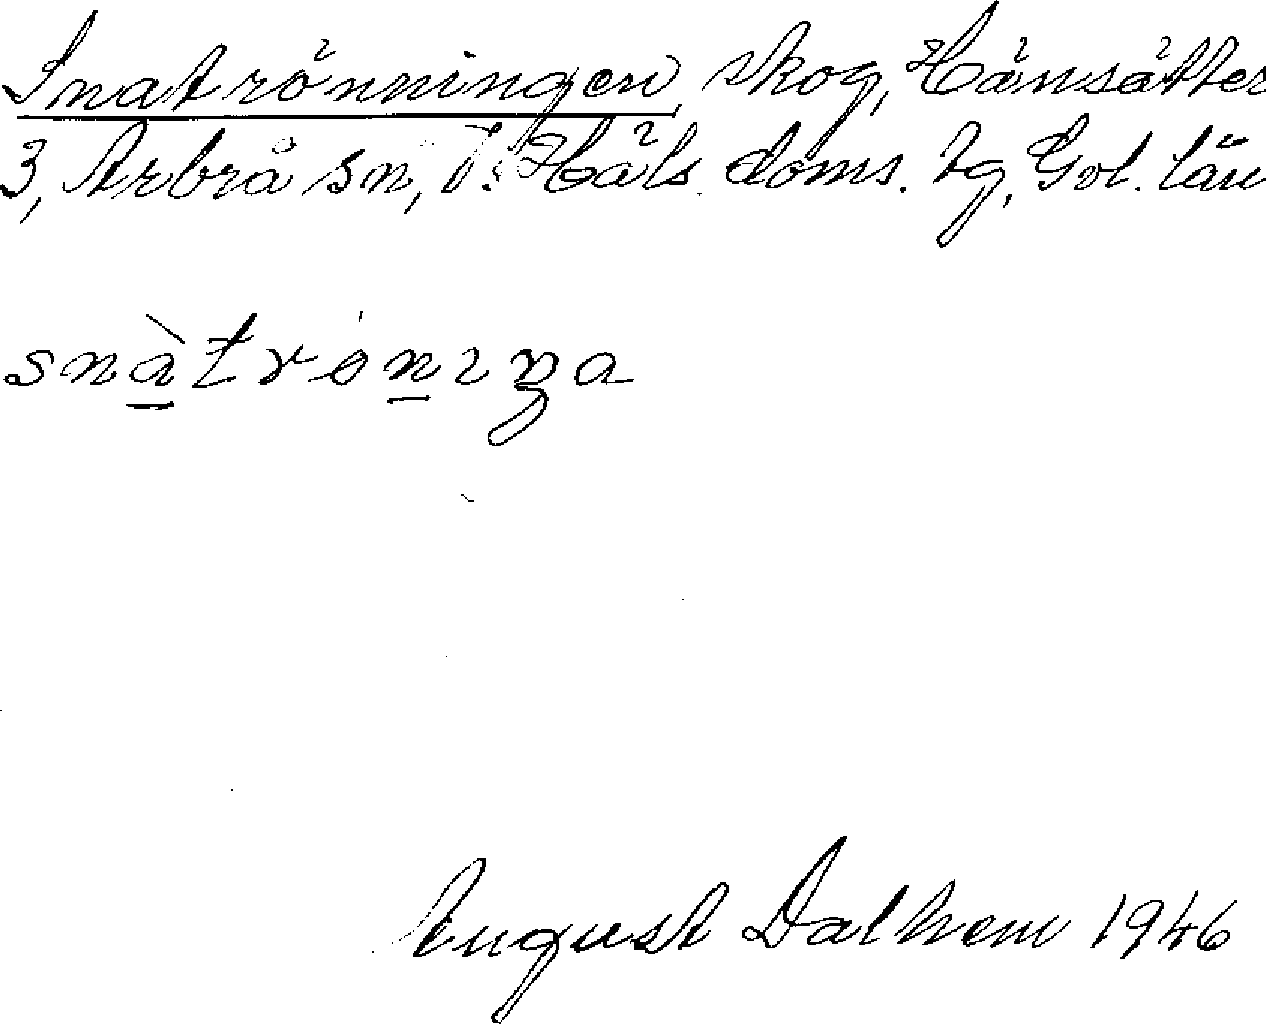 Snatrönningen, skog, Hänsätter
3, Arbrå sn, V. Häls. doms. tg, Gvl. län
snàtröniŋa
August Dalhem 1946